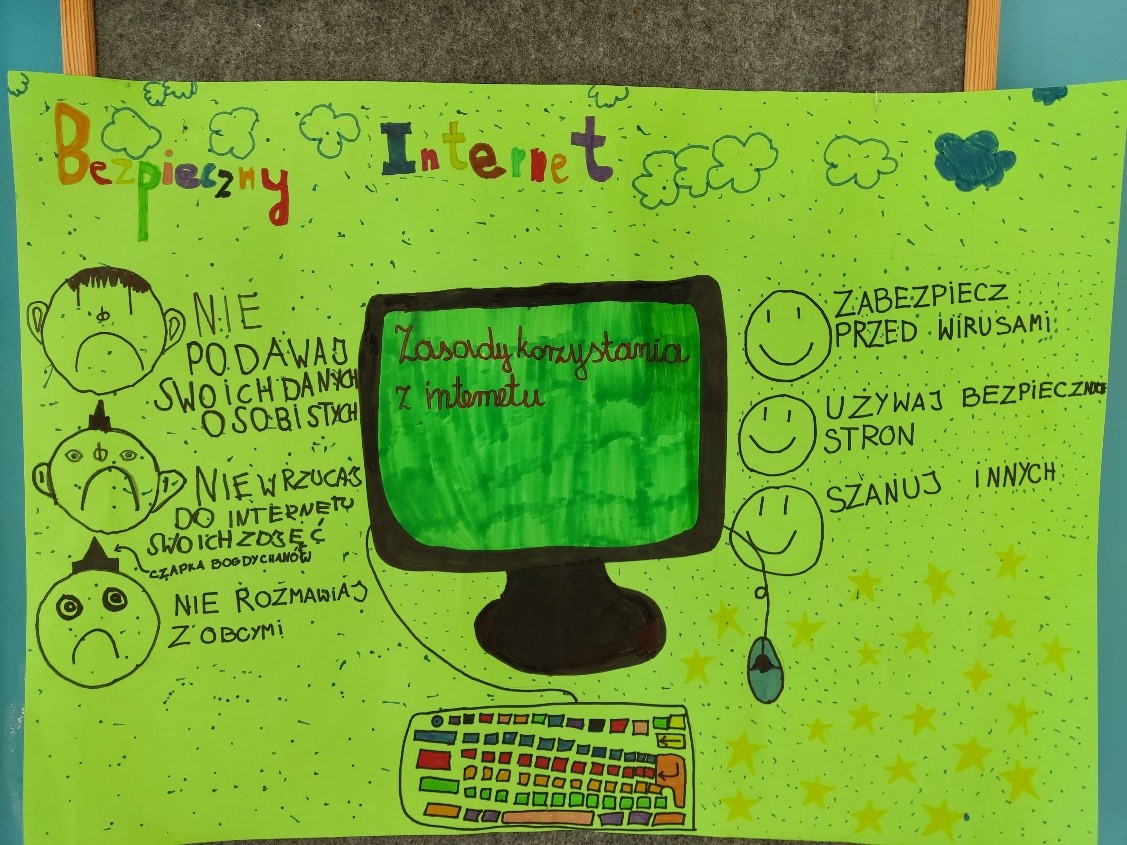 Bezpieczny Internet
Zasady korzystania
z internetu
NIE
PODAWAJ
SWOICH DANYCH
OSOBISTYCH
NIE WRZUCAJ
DO INTERNETU
SWOICH ZDJĘĆ
CZAPKA BOGDYCHANÓW
NIE ROZMAWIAJ
Z OBCYMI
ZABEZPIECZ
PRZED WIRUSAMI
UŻYWAJ BEZPIECZNYCH
STRON
SZANUJ INNYCH